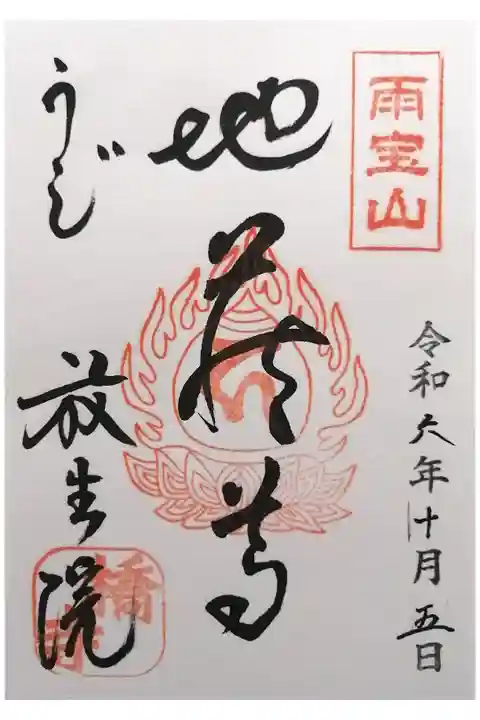 雨宝山
令和六年十月五日
地蔵尊
うじ
放生院
橋寺